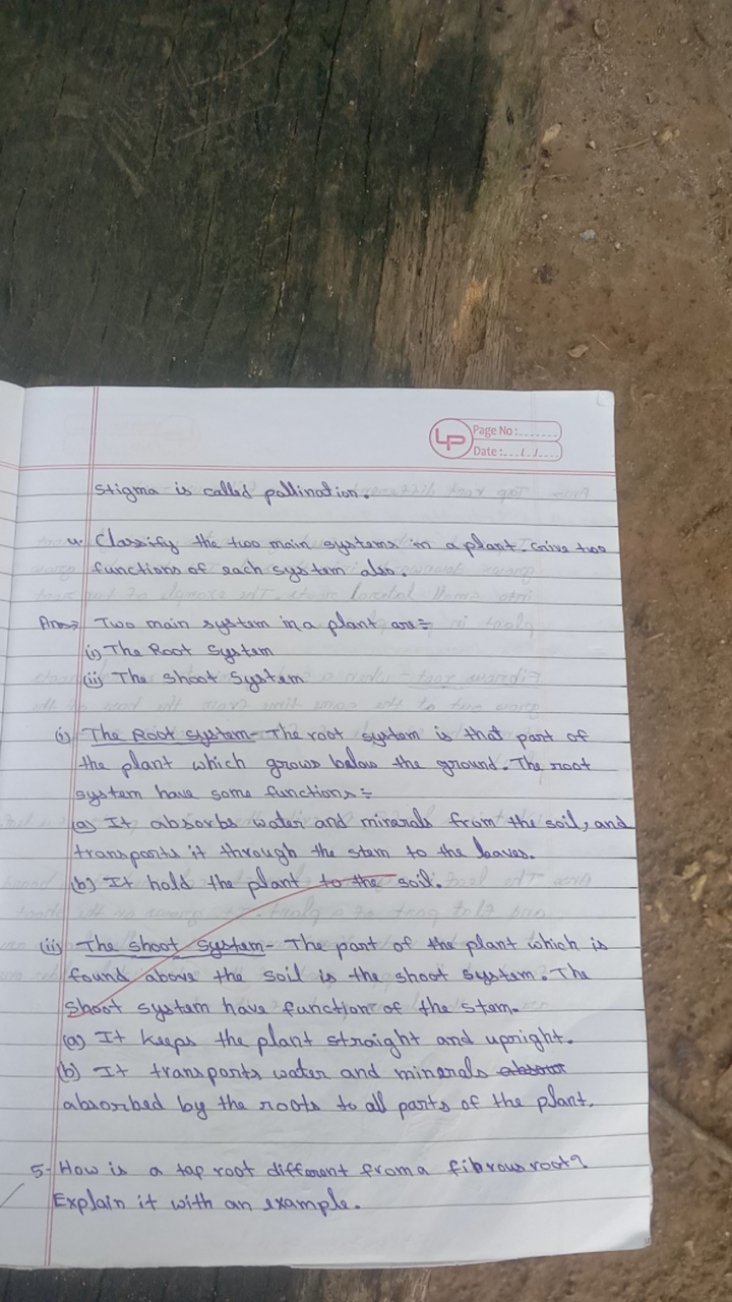 LP
Page No:.......
Date:.../.../....
stigma is called pollination.
4. Classify the two main systems in a plant. Give two
functions of each system also.
Ans→ Two main system in a plant are :-
(i) The Root System
(ii) The Shoot System
(i) The Root system- The root system is that part of
the plant which grows below the ground. The root
system have some functions :-
(a) It absorbs water and minerals from the soil, and
transports it through the stem to the leaves.
(b) It hold the plant to the soil.
(ii) The shoot system- The part of the plant which is
found above the soil is the shoot system. The
shoot system have function of the stem.
(a) It keeps the plant straight and upright.
(b) It transports water and minerals
absorbed by the roots to all parts of the plant.
5- How is a tap root different from a fibrous root?
Explain it with an example.